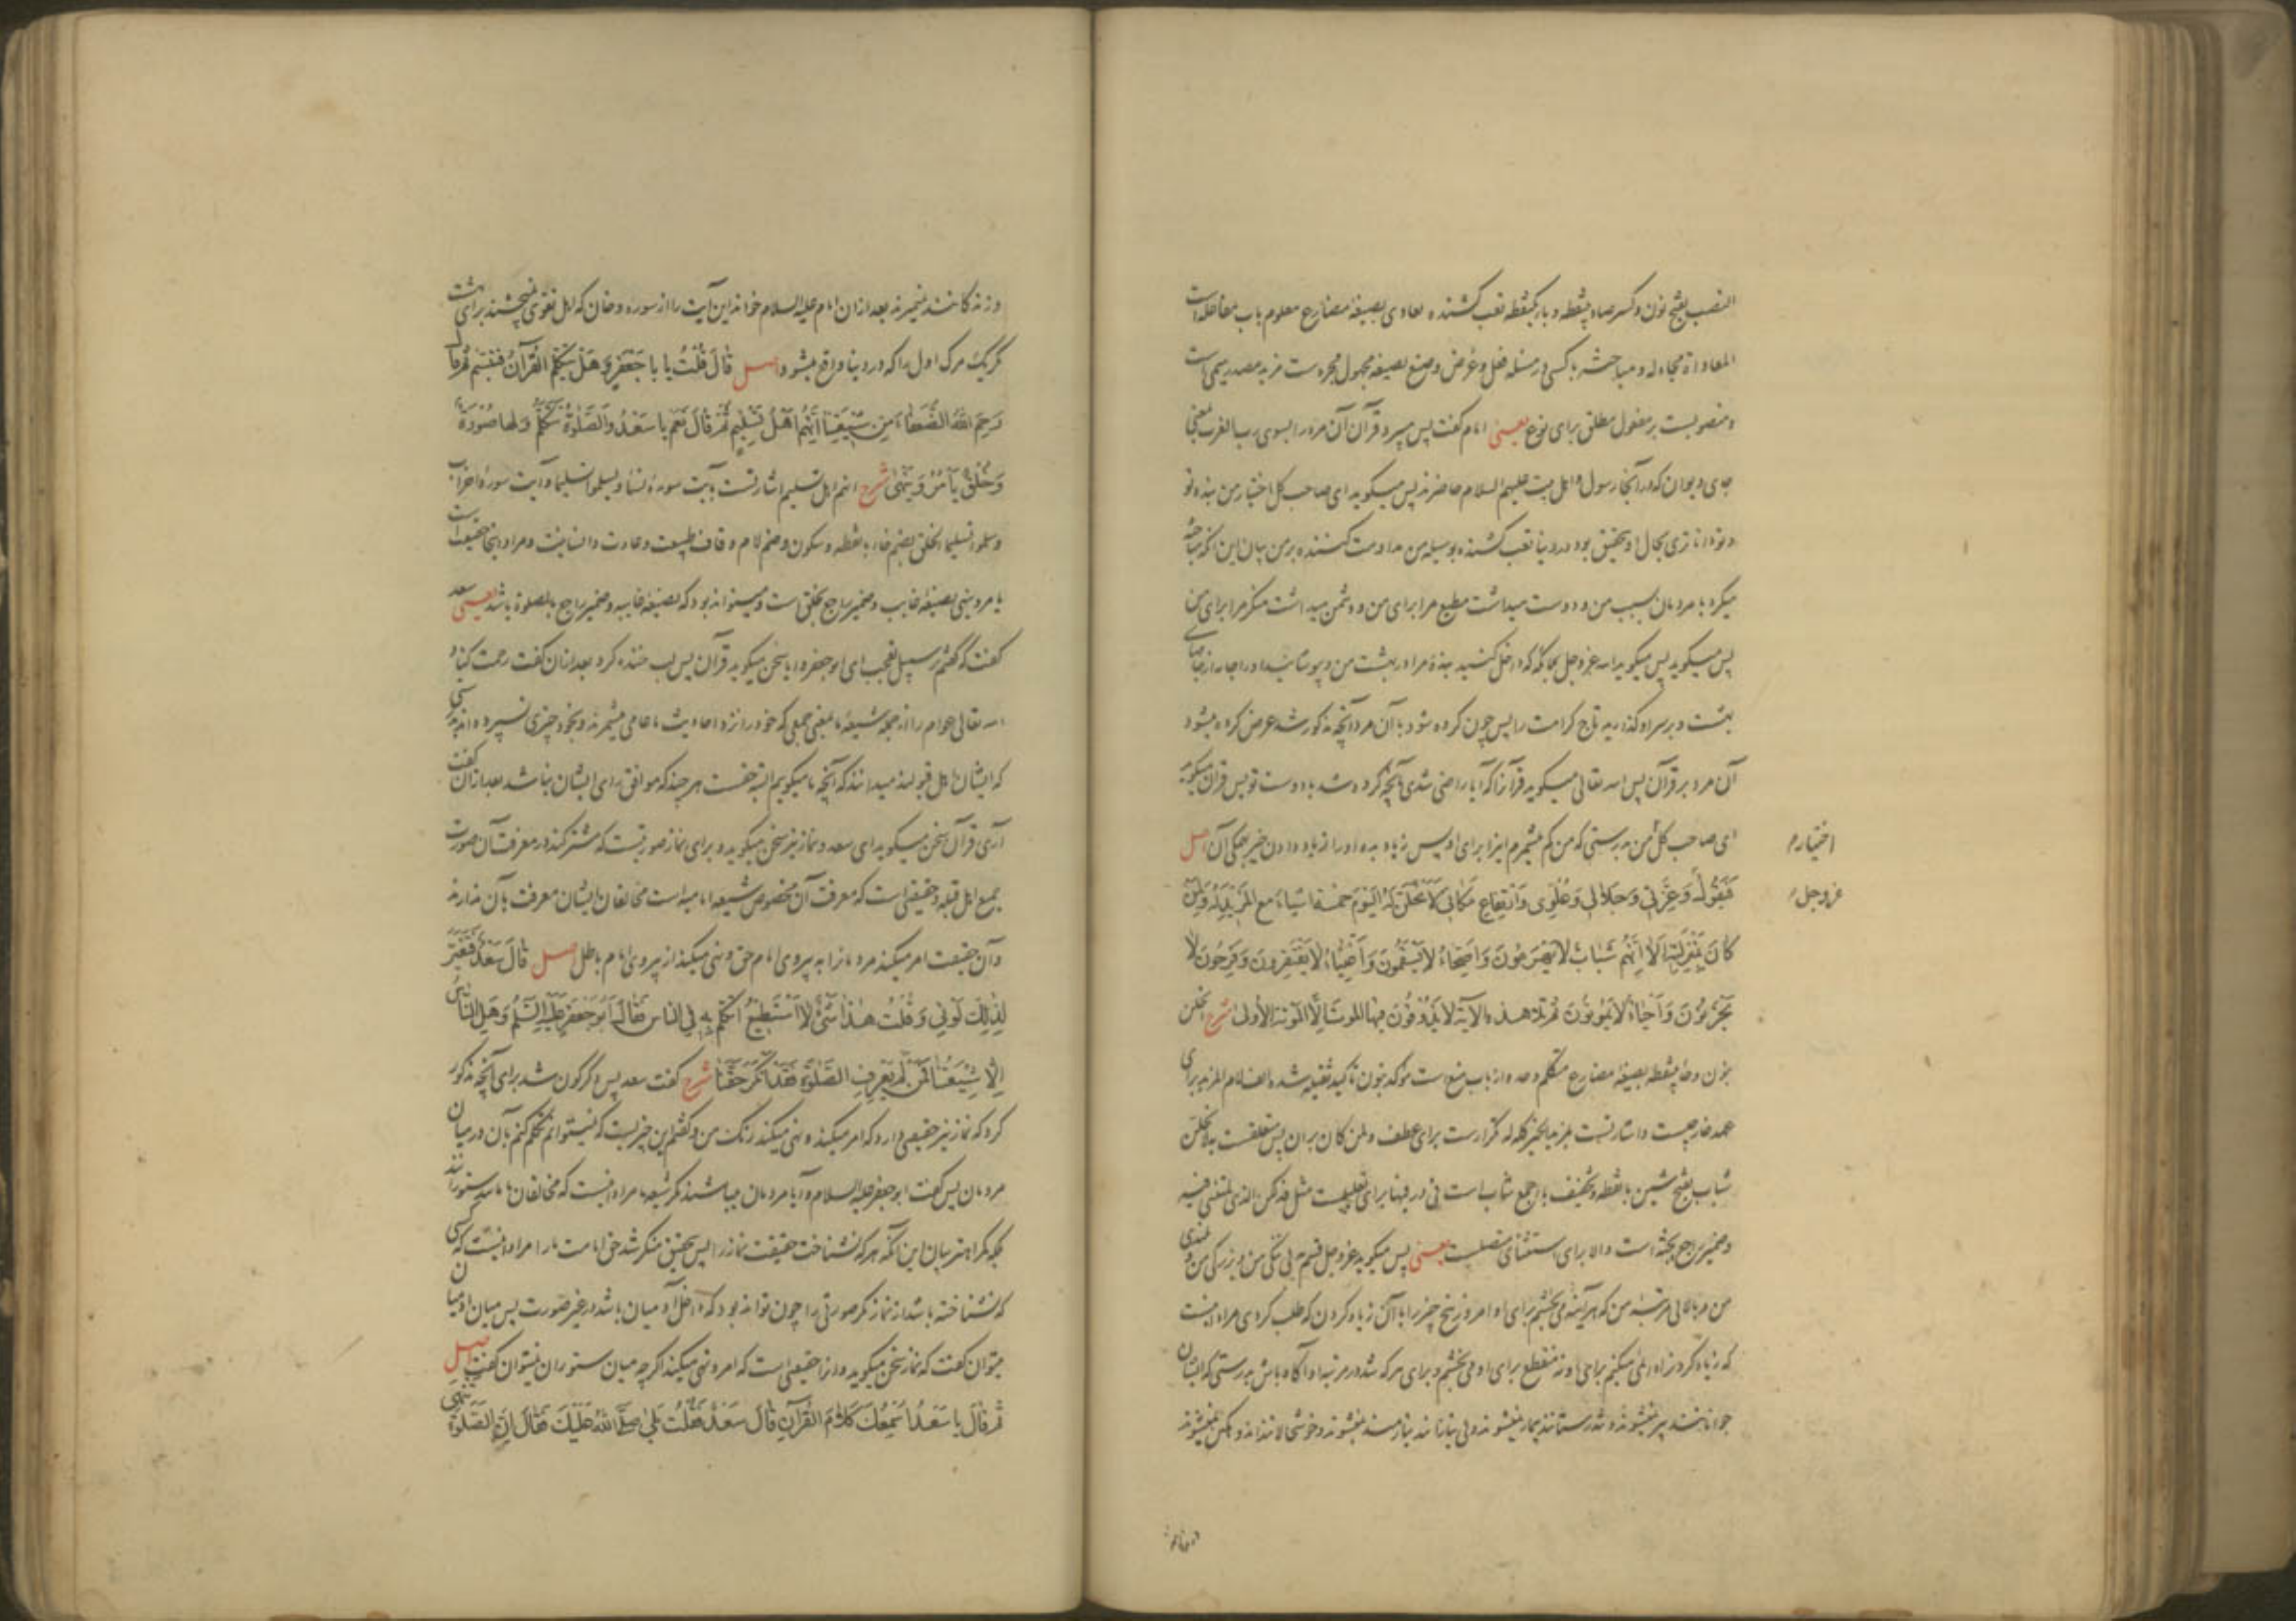 النصب بفتح نون و کسر صاد بینقطه و باء یکنقطه تعب کشنده یعادی بصیغهٔ مضارع معلوم باب مفاعله است
المعاداة مجادله و مباحثه با کسی در مسئله فعل و غرض و صنع بصیغه مجهول مجرد ست مزید مصدر میمی است
و منصوبست بر مفعول مطلق برای نوع یعنی امام گفت پس میبرد قرآن آن مرد را بسوی رب العزت یعنی
جای دیوان که در آنجا رسول و اهل بیت علیهم السلام حاضرند پس میگوید ای صاحب کل اختیار من بنده تو
و تو داناتری بحال او بتحقیق بود در دنیا تعب کشنده بوسیله من مداومت کننده بر من بیان این آنکه مباحثه
میکرد با مردمان بسبب من و دوست میداشت مطیع مرا برای من و دشمن میداشت منکر مرا برای من
پس میگوید پس میگوید الله عز و جل بملائکه که داخل کنید بندهٔ مرا در بهشت من و بپوشانید او را جامه از جامهای
بهشت و بر سر او گذارید تاج کرامت را پس چون کرده شود با آن مرد آنچه مذکور شد عرض کرده میشود
آن مرد بر قرآن پس الله تعالی میگوید قرآن را که آیا راضی شدی بآنچه کرده شد با دوست تو پس قرآن میگوید
ای صاحب کل من بدرستی که من کم میشمرم اینرا برای او پس زیاد بده او را از زیاده دادن خیر همگی آن اصل
اختیار م
فَيَقُولُ وَعِزَّتِي وَجَلَالِي وَعُلُوِّي وَارْتِفَاعِ مَكَانِي لَأَنْحَلَنَّ لَهُ الْيَوْمَ خَمْسَةَ أَشْيَاءَ مَعَ الْمَزِيدِ لَهُ وَلِمَنْ
عزوجل
كَانَ بِمَنْزِلَتِهِ أَلَا إِنَّهُمْ شَبَابٌ لَا يَهْرَمُونَ وَأَصِحَّاءُ لَا يَسْقُمُونَ وَأَغْنِيَاءُ لَا يَفْتَقِرُونَ وَفَرِحُونَ لَا
يَحْزَنُونَ وَأَحْيَاءٌ لَا يَمُوتُونَ ثُمَّ تَلَا هذه الآيَةَ لَا يَذُوقُونَ فِيهَا الْمَوْتَ إِلَّا الْمَوْتَةَ الْأُولَى شرح انحلن
بنون و حاء بینقطه بصیغهٔ مضارع متکلم وحده از باب منع است مؤکد بنون تأکید ثقیله شده الف لام المزید برای
عهد خارجیست و اشارتست بمزید الخیر کله له تکرارست برای عطف و لمن کان بر آن پس متعلقست به لانحلن
شباب بفتح شین با نقطه و تخفیف باء جمع شاب است فی در فیها برای تعلیلست مثل فذلکن الذی لمتننی فیه
و ضمیر راجع بجنّه است و الا برای استثنای متصلست یعنی پس میگوید عز و جل قسم بی ننگی من و بزرگی من و بلندی
من و بالائی مرتبهٔ من که هر آینه می بخشم برای او امروز پنج چیز را با آن زیاد کردن که طلب کردی مراد اینست
که زیاد کردن او را نمی کنم برای او نه منقطع برای او می بخشم و برای هر که شد در مرتبه او آگاه باش بدرستی که ایشان
جوانانند پیر نمیشوند و تندرستانند بیمار نمیشوند و بی نیازانند نیازمند نمیشوند و خوشحالانند اندوهگین نمیشوند
و زندگانند نمیمیرند بعد از آن امام علیه السلام خواند این آیت را از سوره دخان که اهل تقوی نمیچشند برای بهشت
مرگ را مگر مرگ اول را که در دنیا واقع میشود اصل قَالَ قُلْتُ يَا بَا جَعْفَرٍ وَهَلْ يَتَكَلَّمُ الْقُرْآنُ فَتَبَسَّمَ ثُمَّ قَالَ
رَحِمَ اللهُ الضُّعَفَاءَ مِنْ شِيعَتِنَا إِنَّهُمْ أَهْلُ تَسْلِيمٍ ثُمَّ قَالَ نَعَمْ يَا سَعْدُ وَالصَّلٰوةُ تَتَكَلَّمُ وَلَهَا صُورَةٌ
وَخُلُقٌ يَأْمُرُ وَيَنْهَىٰ شرح انهم اهل تسلیم اشارتست بآیت سورهٔ نساء و یسلموا تسلیما و آیت سورهٔ احزاب
و سلموا تسلیما الخلق بضم خاء با نقطه و سکون و ضم لام و قاف طبیعت و عادت و انسانیت و مراد اینجا حقیقت است
یامر و ینهی بصیغهٔ غایب و ضمیر راجع بخلق است و میتواند بود که بصیغهٔ غایبه و ضمیر راجع بالصلوة باشد یعنی سعد
گفت که گفتم بر سبیل تعجب ای ابو جعفر و آیا سخن میگوید قرآن پس لب خنده کرد بعد از آن گفت رحمت کناد
الله تعالی عوام را از جمله شیعهٔ ما یعنی جمعی که خود را نزد احادیث ما عامی میشمرند و بخود چیزی نسپرده اند
که ایشان اهل قبولند میدانند که آنچه ما میگوییم البته حقست هر چند که موافق رای ایشان نباشد بعد از آن گفت
آری قرآن سخن میگوید ای سعد و نماز نیز سخن میگوید و برای نماز صورتیست که مشترکند در معرفت آن صورت
جمیع اهل قبله و حقیقتی است که معرفت آن مخصوص شیعه امامیه است مخالفان ایشان معرفت بآن ندارند
و آن حقیقت امر میکند مردمان را به پیروی امام حق و نهی میکند از پیروی امام باطل اصل قَالَ سَعْدٌ فَتَغَيَّرَ
لِذٰلِكَ لَوْنِي وَقُلْتُ هٰذَا شَيْءٌ لَا أَسْتَطِيعُ أَتَكَلَّمُ بِهِ فِي النَّاسِ فَقَالَ أَبُو جَعْفَرٍ عَلَيْهِ السَّلَمُ وَهَلِ النَّاسُ
إِلَّا شِيعَتُنَا فَمَنْ لَمْ يَعْرِفِ الصَّلٰوةَ فَقَدْ أَنْكَرَ حَقَّنَا شرح گفت سعد پس دگرگون شد برای آنچه مذکور
کرد که نماز نیز حقیقتی دارد که امر میکند و نهی میکند رنگ من و گفتم این چیزیست که نمیتوانم تکلم کنم بآن در میان
مردمان پس گفت ابو جعفر علیه السلام و آیا مردمان میباشند مگر شیعه ما مراد اینست که مخالفان ما مانند ستورانند
بلکه گمراه تر بیان این آنکه هر که نشناخت حقیقت نماز را پس بتحقیق منکر شد حق امامت ما را مراد اینست که کسی
که نشناخته باشد از نماز مگر صورتی را چون تواند بود که داخل آدمیان باشد در غیر صورت پس میان آدمیان
میتوان گفت که نماز سخن میگوید و او را حقیقتی است که امر و نهی میکند اگر چه میان ستوران نمیتوان گفت اصل
ثُمَّ قَالَ يَا سَعْدُ أُسْمِعُكَ كَلَامَ الْقُرْآنِ قَالَ سَعْدٌ فَقُلْتُ بَلَىٰ صَلَّى اللهُ عَلَيْكَ فَقَالَ إِنَّ الصَّلٰوةَ تَنْهَىٰ